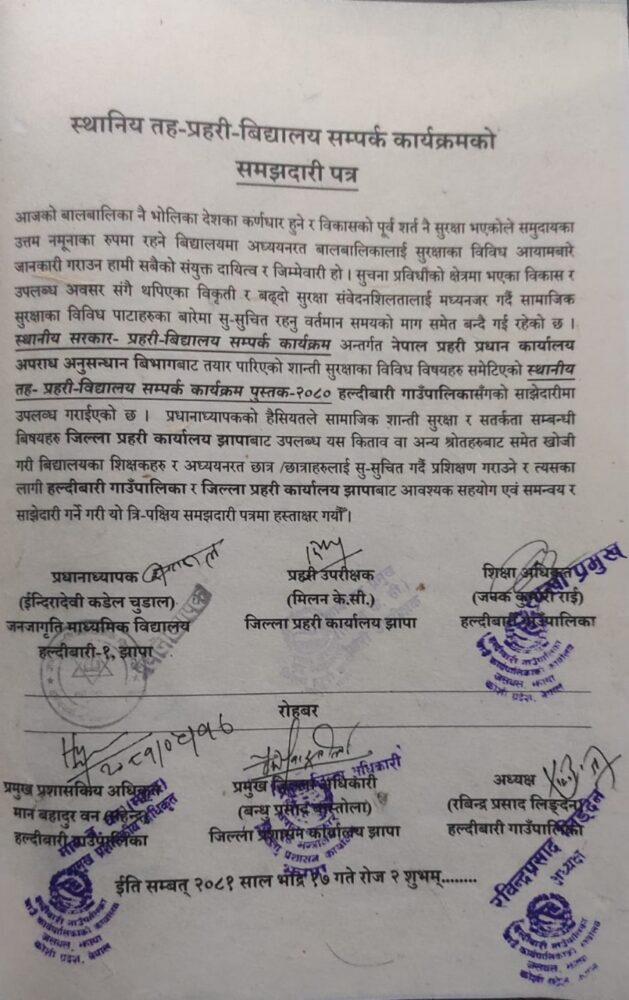 स्थानिय तह-प्रहरी-बिद्यालय सम्पर्क कार्यक्रमको
समझदारी पत्र
आजको बालबालिका नै भोलिका देशका कर्णधार हुने र विकासको पूर्व शर्त नै सुरक्षा भएकोले समुदायका
उत्तम नमूनाका रुपमा रहने बिद्यालयमा अध्ययनरत बालबालिकालाई सुरक्षाका विविध आयामबारे
जानकारी गराउन हामी सबैको संयुक्त दायित्व र जिम्मेवारी हो। सुचना प्रविधीको क्षेत्रमा भएका विकास र
उपलब्ध अवसर संगै थपिएका विकृती र बढ्दो सुरक्षा संवेदनशिलतालाई मध्यनजर गर्दै सामाजिक
सुरक्षाका विविध पाटाहरुका बारेमा सु-सुचित रहनु वर्तमान समयको माग समेत बन्दै गई रहेको छ ।
स्थानीय सरकार- प्रहरी-बिद्यालय सम्पर्क कार्यक्रम अन्तर्गत नेपाल प्रहरी प्रधान कार्यालय
अपराध अनुसन्धान बिभागबाट तयार पारिएको शान्ती सुरक्षाका विविध विषयहरु समेटिएको स्थानीय
तह- प्रहरी-विद्यालय सम्पर्क कार्यक्रम पुस्तक-२०८० हल्दीबारी गाउँपालिकासँगको साझेदारीमा
उपलब्ध गराईएको छ । प्रधानाध्यापकको हैसियतले सामाजिक शान्ती सुरक्षा र सतर्कता सम्बन्धी
बिषयहरु जिल्ला प्रहरी कार्यालय झापाबाट उपलब्ध यस किताव वा अन्य श्रोतहरुबाट समेत खोजी
गरी बिद्यालयका शिक्षकहरु र अध्ययनरत छात्र /छात्राहरुलाई सु-सुचित गर्दै प्रशिक्षण गराउने र त्यसका
लागी हल्दीबारी गाउँपालिका र जिल्ला प्रहरी कार्यालय झापाबाट आवश्यक सहयोग एवं समन्वय र
साझेदारी गर्ने गरी यो त्रि-पक्षिय समझदारी पत्रमा हस्ताक्षर गर्यौं।
प्रधानाध्यापक प्रहरी उपरीक्षक शिक्षा अधिकृत
(ईन्दिरादेवी कडेल चुडाल) (मिलन के.सी.) (जनक कुमारी राई)
जनजागृति माध्यमिक विद्यालय जिल्ला प्रहरी कार्यालय झापा हल्दीबारी गाउँपालिका
हल्दीबारी-१, झापा
रोहबर
प्रमुख प्रशासकिय अधिकृत प्रमुख जिल्ला अधिकारी अध्यक्ष
मान बहादुर वन (बन्धु प्रसाद बास्तोला) (रबिन्द्र प्रसाद लिङ्देन)
हल्दीबारी गाउँपालिका जिल्ला प्रशासन कार्यालय झापा हल्दीबारी गाउँपालिका
ईति सम्बत् २०८१ साल भाद्र १७ गते रोज २ शुभम्........
रविन्द्रप्रसाद लिङ्देन
अध्यक्ष